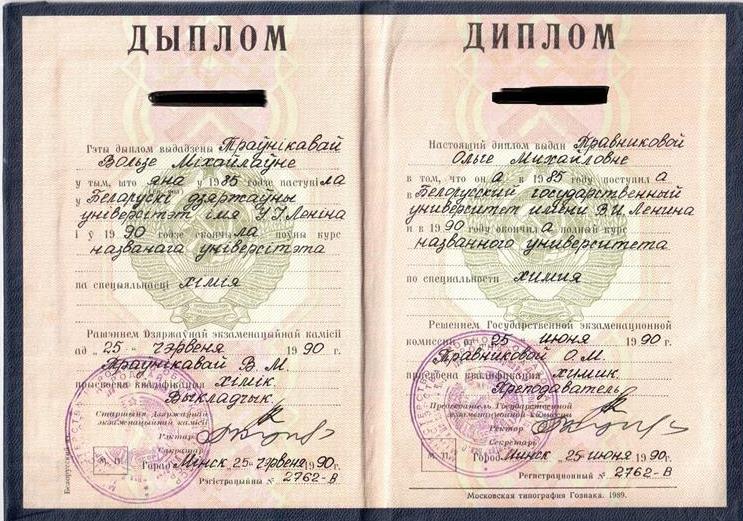 ДЫПЛОМ
Гэты дыплом выдадзены Траўнікавай
Вользе Міхайлаўне
у тым, што яна у 1985 годзе паступіла
у Беларускі дзяржаўны
універсітэт імя У.І.Леніна
і ў 1990 годзе скончыла поўны курс
названага універсітэта
па спецыяльнасці хімія
Рашэннем Дзяржаўнай экзаменацыйнай камісіі
ад „25“ чэрвеня 1990 г.
Траўнікавай В.М.
прысвоена кваліфікацыя хімік.
Выкладчык
Старшыня Дзяржаўнай
экзаменацыйнай камісіі
Рэктар
Сакратар
М. П.
Горад Мінск 25 чэрвеня 1990 г.
Рэгістрацыйны № 2762-В
ДИПЛОМ
Настоящий диплом выдан Травниковой
Ольге Михайловне
в том, что она в 1985 году поступила
в Белорусский государственный
университет имени В.И.Ленина
и в 1990 году окончила полный курс
названного университета
по специальности химия
Решением Государственной экзаменационной
комиссии от „25“ июня 1990 г.
Травниковой О.М.
присвоена квалификация химик.
Преподаватель
Председатель Государственной
экзаменационной комиссии
Ректор
Секретарь
М. П.
Город Минск 25 июня 1990 г.
Регистрационный № 2762-В
Московская типография Гознака. 1989.